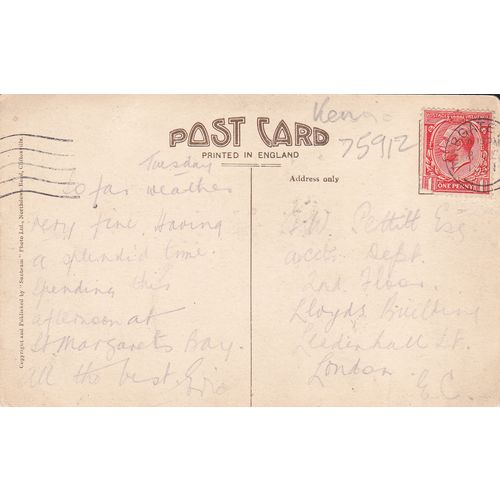 Kenn
75912
POST CARD
PRINTED IN ENGLAND
Address only
POSTAGE REVENUE
ONE PENNY
Copyright and Published by "Sunbeam" Photo Ltd., Northdown Road, Cliftonville.
Tuesday
So far weather
very fine. Having
a splendid time.
Spending this
afternoon at
St Margarets Bay.
All the best
W. Pettitt Esq
acct Dept.
2nd Floor.
Lloyds Building
Leadenhall St.
London
E.C.